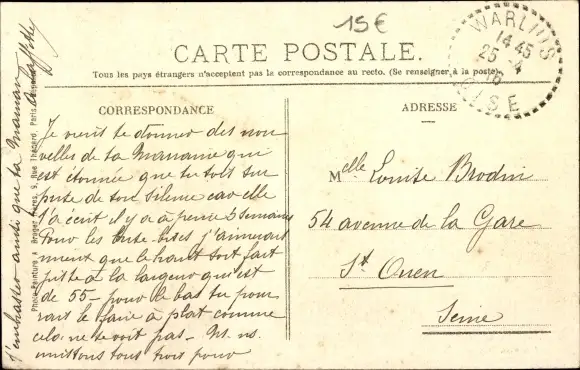 15€
WARLUIS
14 45
25 - 4
16
OISE
CARTE POSTALE.
Tous les pays étrangers n'acceptent pas la correspondance au recto. (Se renseigner à la poste)
CORRESPONDANCE
ADRESSE
Je viens te donner des nou
velles de ta Mamanie qui
est étonnée que tu sois sur
prise de son silence car elle
t'a écrit il y a à peine 3 semaines
Pour les j'aimerais
que le haut soit fait
à la largeur qu'est
de 55 – pour le bas tu pour
rais le faire à plat comme
cela ne se voit pas – Ns. ns.
unissons tous trois pour
t'embrasser ainsi que ta Maman
Melle Louise Brodin
54 avenue de la Gare
St Ouen
Seine
Photo-Peinture A. Breger Frères, 9, Rue Thénard, Paris